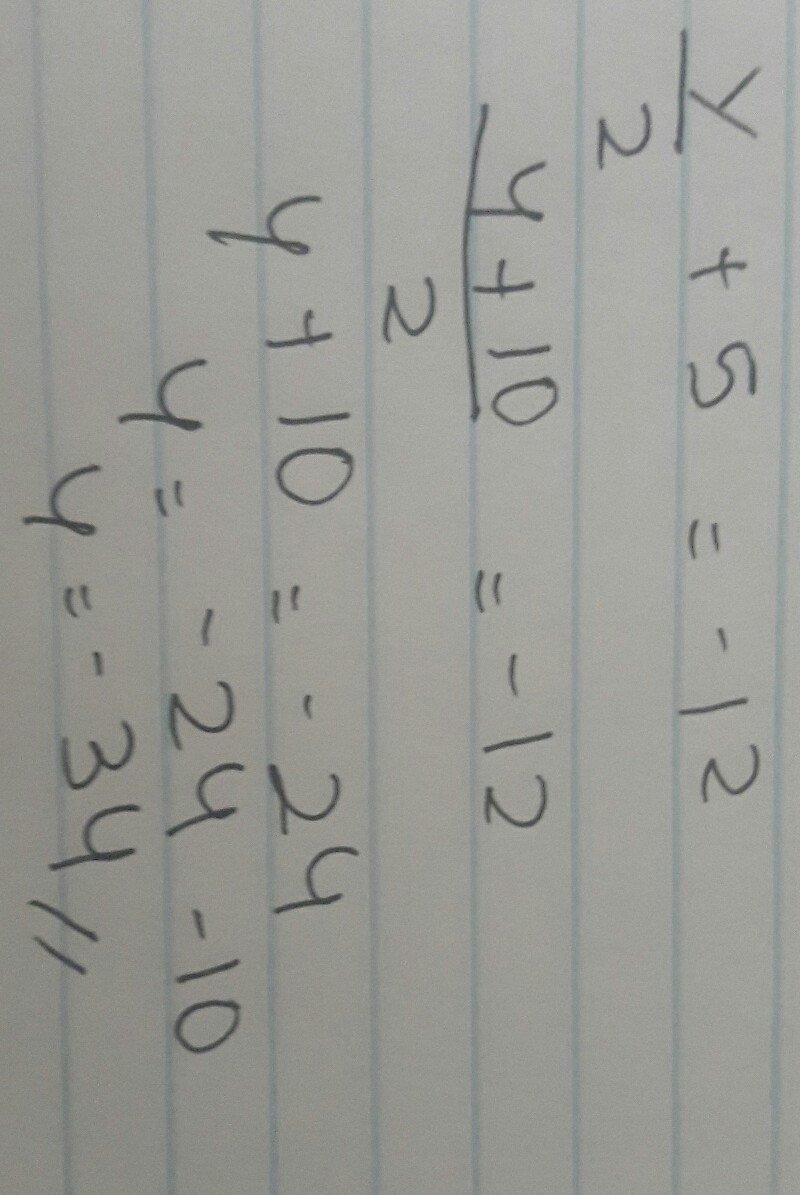 y/2 + 5 = -12
(y + 10)/2 = -12
y + 10 = -24
y = -24 -10
y = -34 //